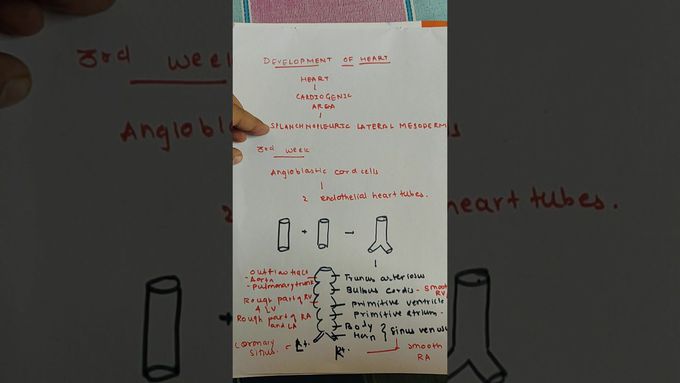 DEVELOPMENT OF HEART
HEART
CARDIOGENIC
AREA
SPLANCHNOPLEURIC LATERAL MESODERM
3rd week
Angioblastic cord cells
2 endothelial heart tubes.
+
Outflow tract
- Aorta
- Pulmonary trunk
Rough part of RV
& LV
Rough part of RA
and LA
coronary
sinus.
Lt.
Truncus arteriosus
Bulbus cordis - smooth
RV
primitive ventricle
primitive atrium.
Body
Horn
Sinus venosus
Rt.
smooth
RA
3rd week
Angiobla
2
heart tubes.
+